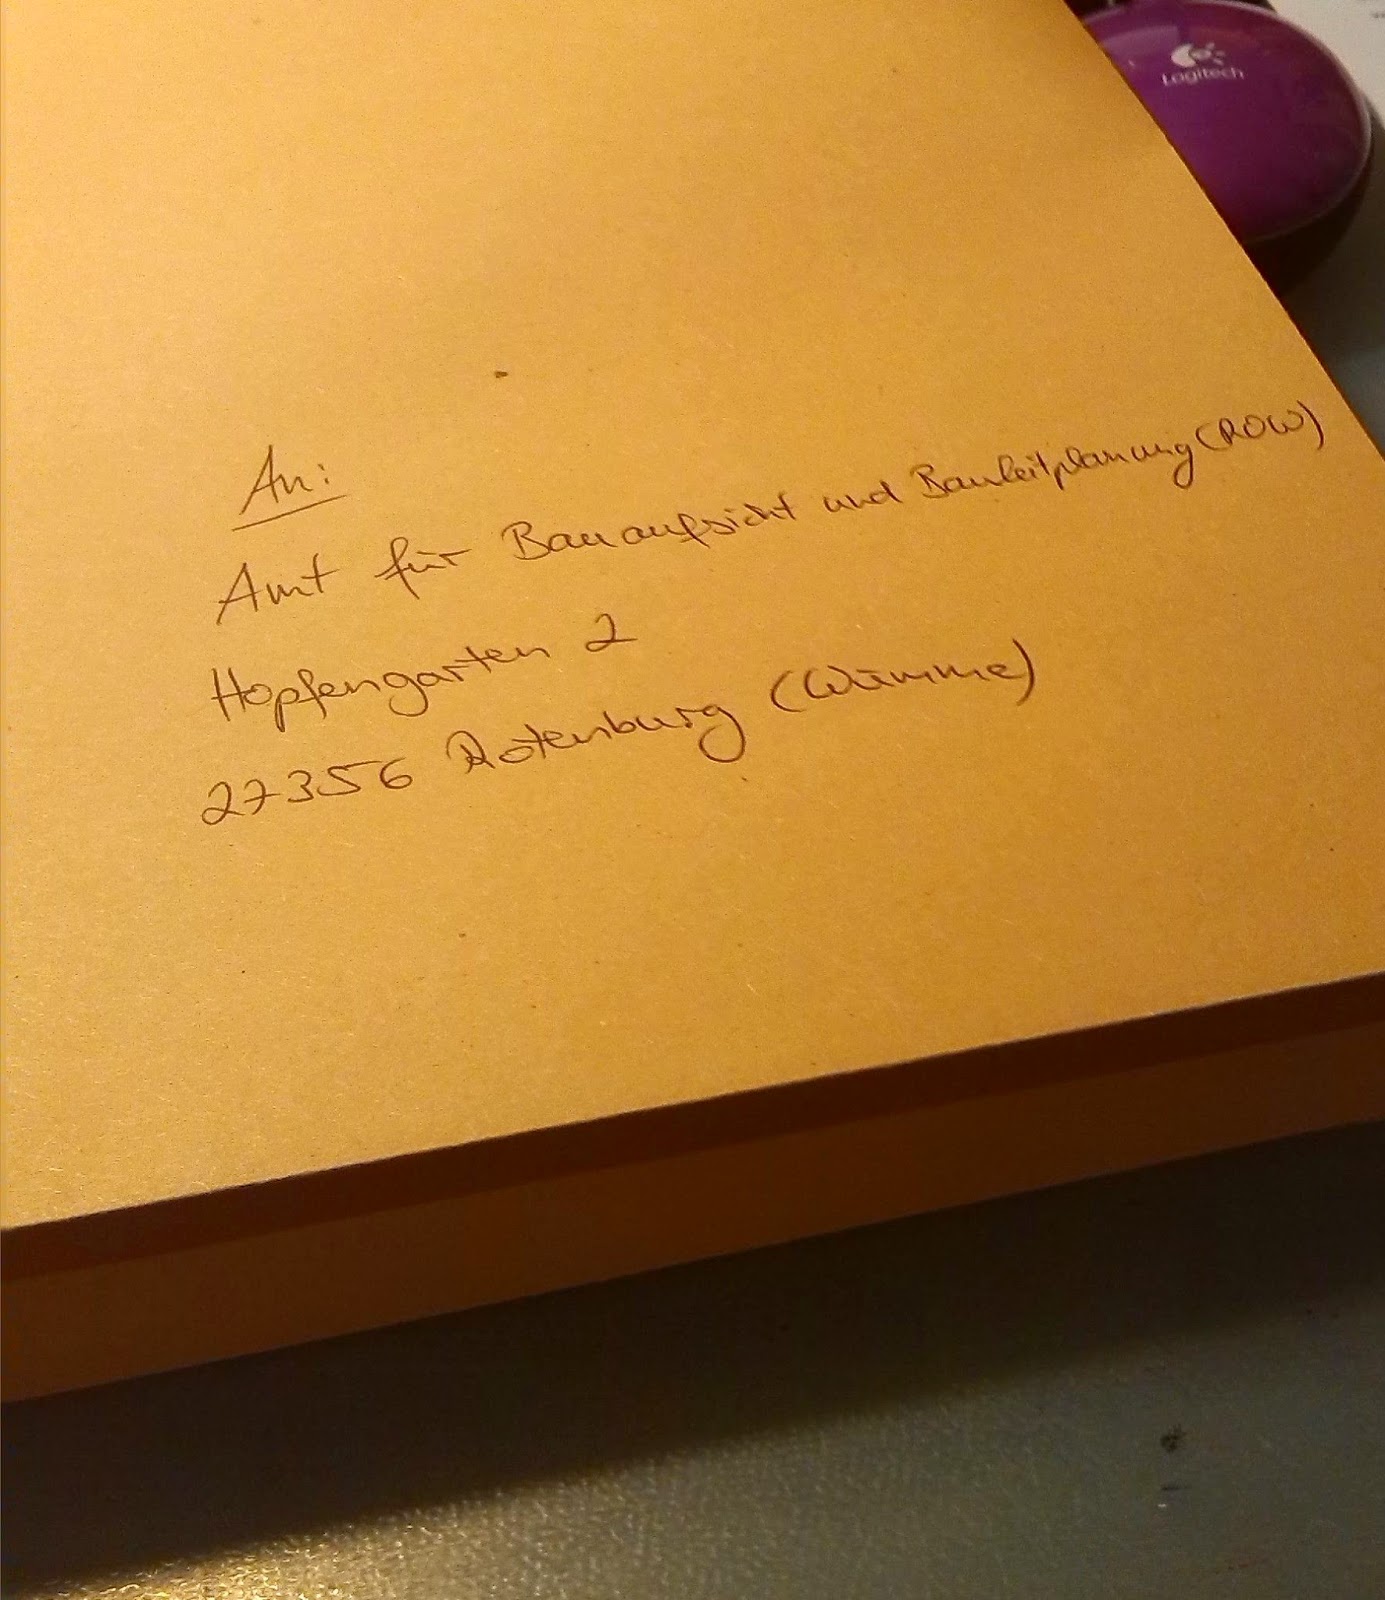 Logitech
An:
Amt für Bauaufsicht und Bauleitplanung (ROW)
Hopfengarten 2
27356 Rotenburg (Wümme)